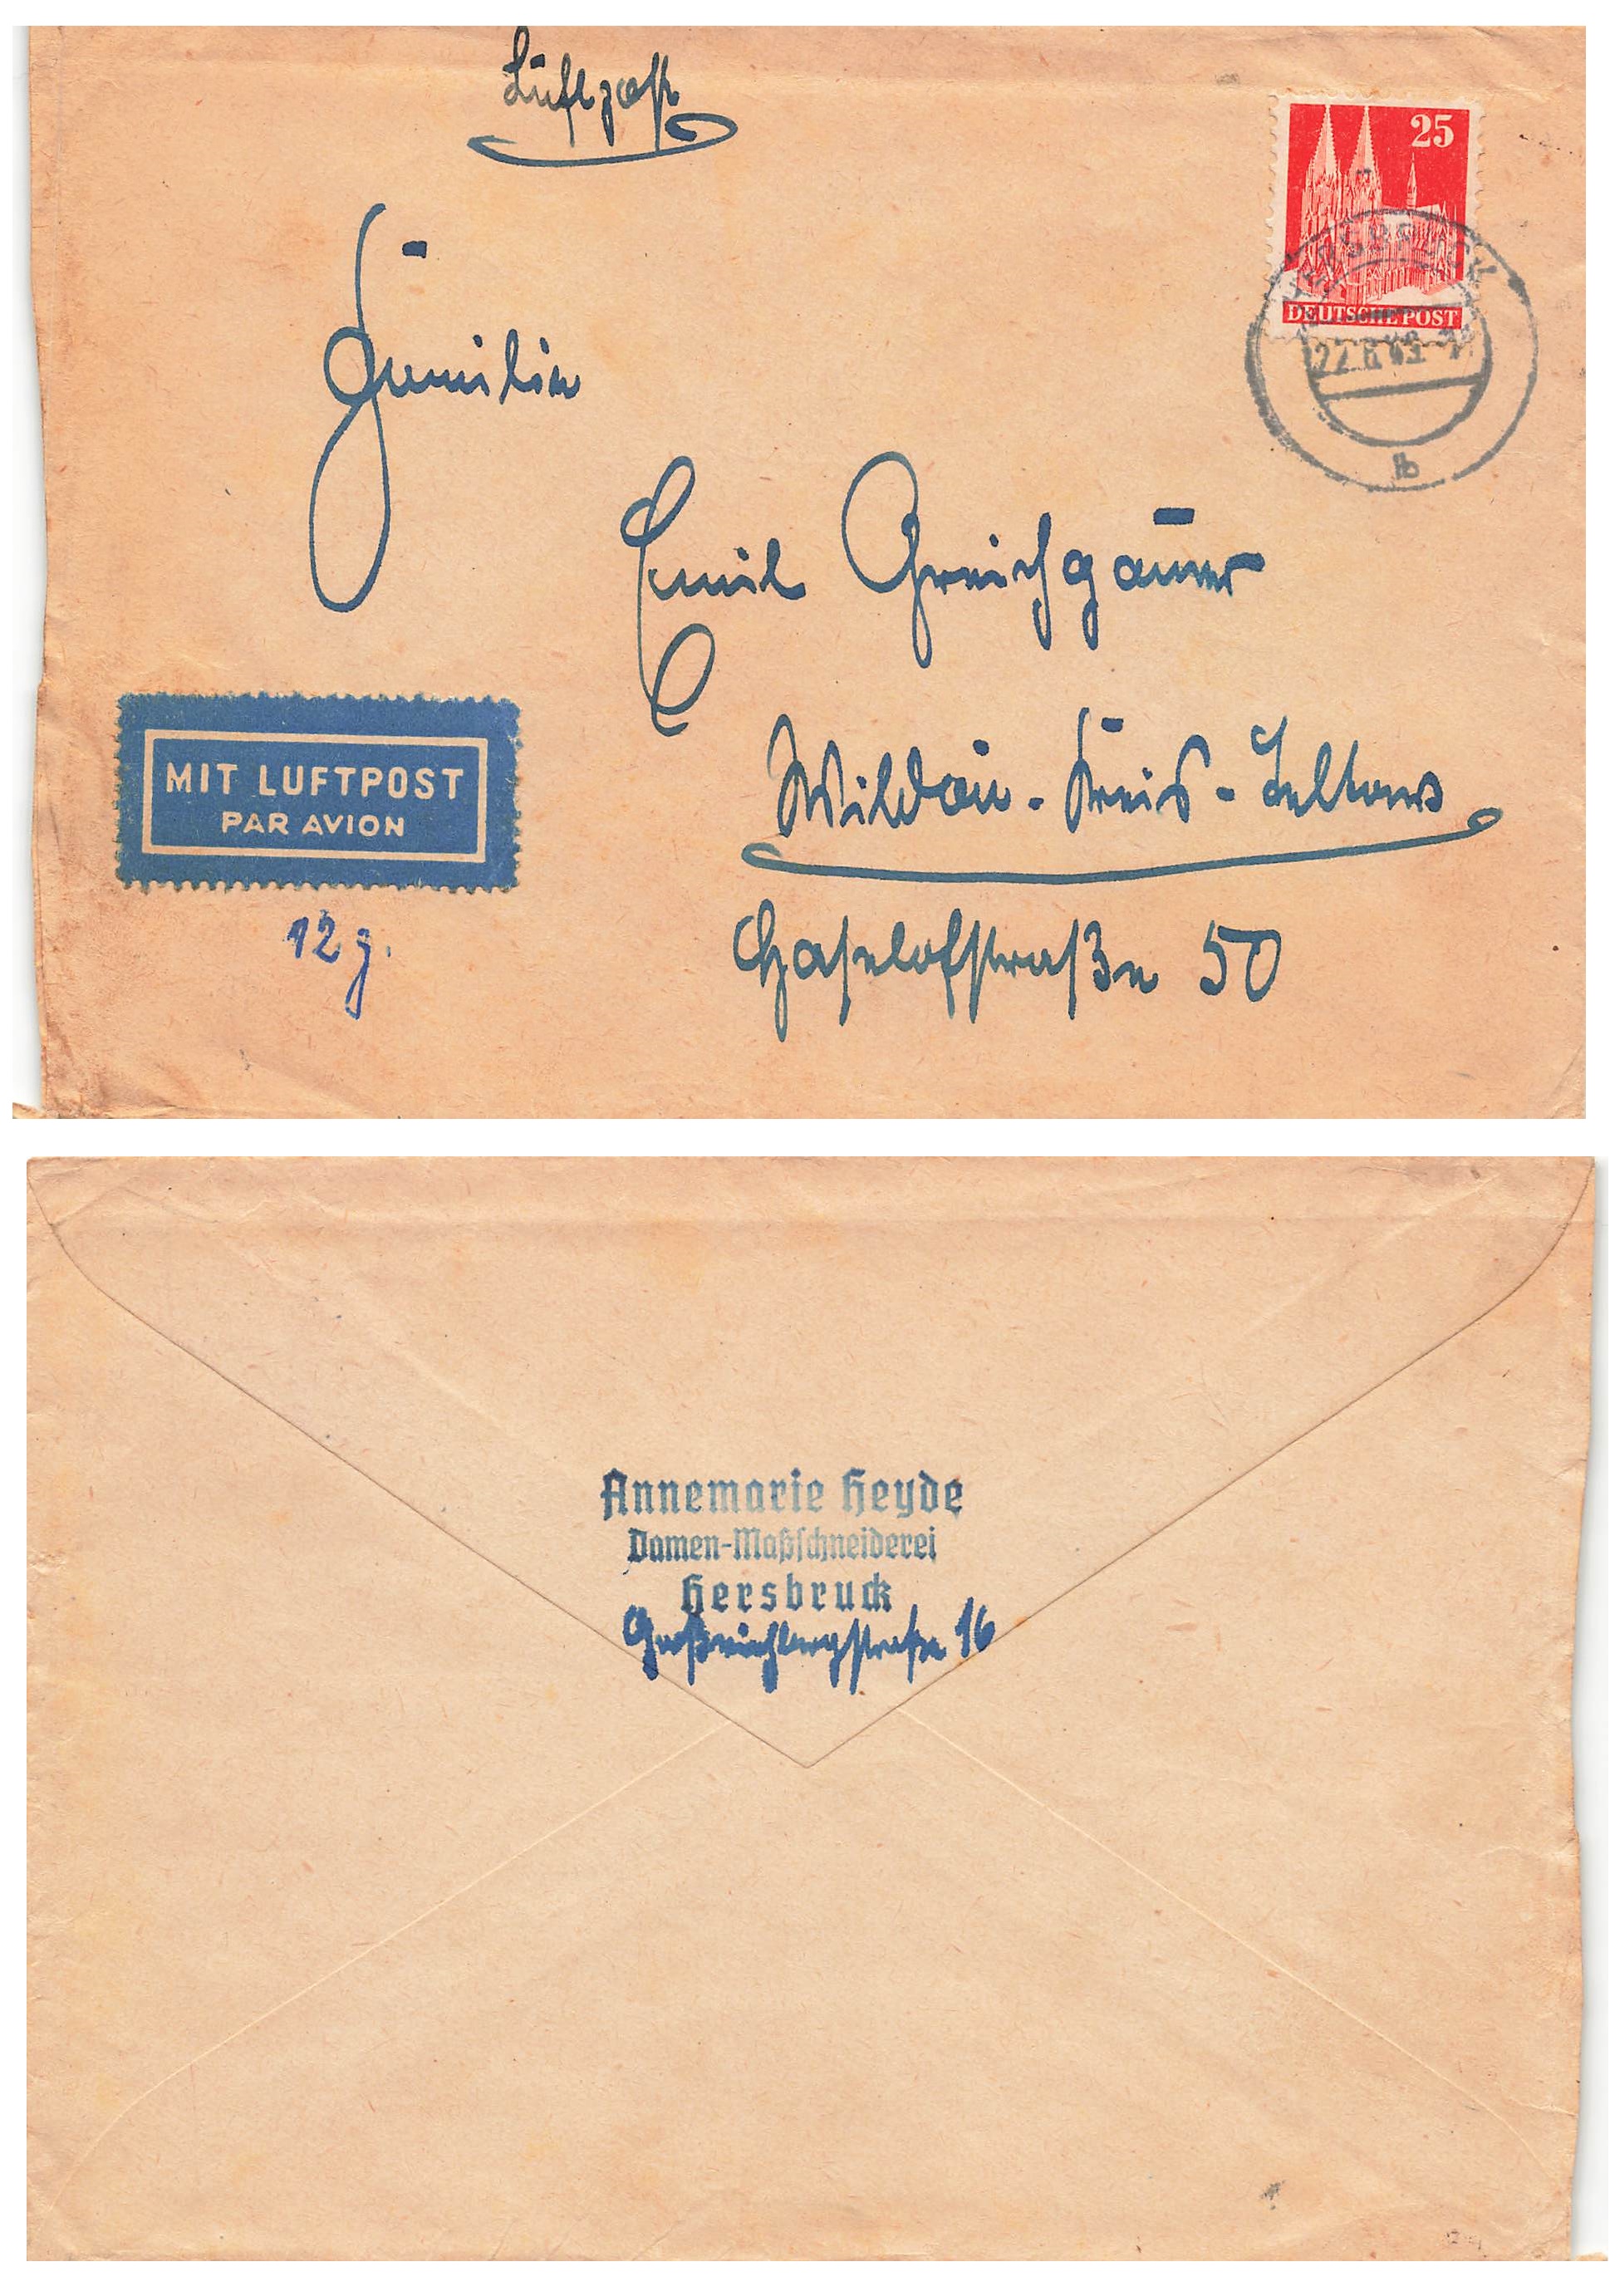 Luftpost
25
DEUTSCHE POST
HERSBRUCK
b
Familie
Emil Greichgauer
Wildau-Kreis-Teltow
Haselofstraße 50
MIT LUFTPOST
PAR AVION
12 g.
Annemarie Heyde
Damen-Maßschneiderei
Hersbruck
Großviehbergstraße 16